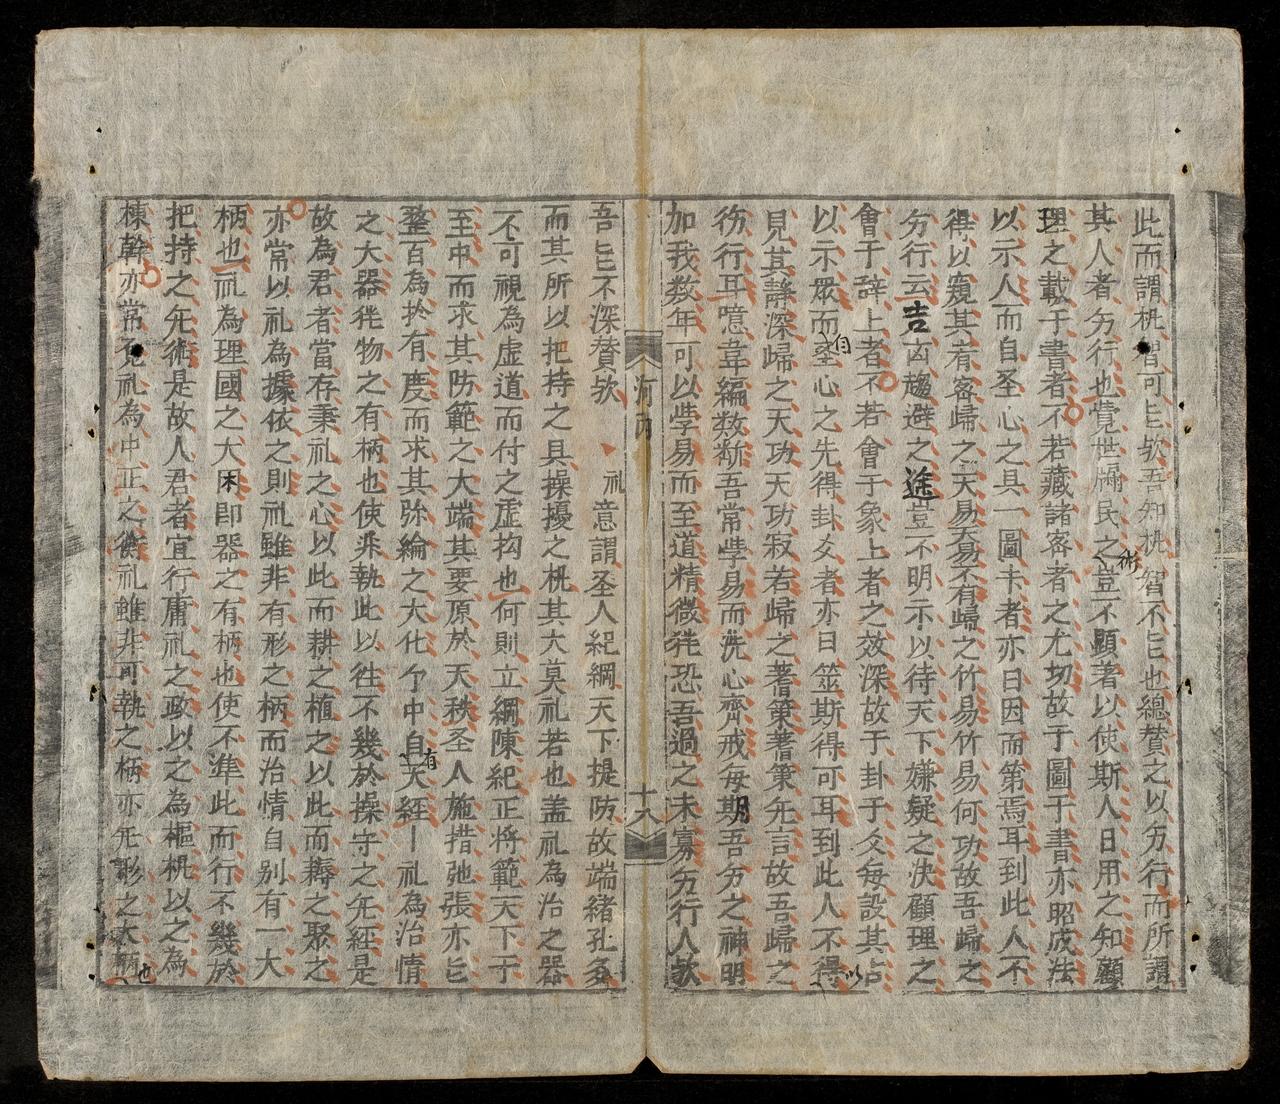 此而謂枳智可㠯欤吾知枳智不㠯也總赞之以分行而所謂
其人者分行也覺世牖民之術豈不顯著以使斯人日用之知顧
理之載于書者不若藏諸客者之尤切故于圖于書亦昭成法
以示人而自圣心之具一圖卡者亦曰因而第焉耳到此人不
得以窺其有客歸之天易天易不有歸之竹易竹易何功故吾歸之
分行云吉凶趨避之途豈不明示以待天下嫌疑之决顧理之
會于辞上者不若會于象上者之效深故于卦于爻每設其占
以示眾而自圣心之先得卦爻者亦曰筮斯得可耳到此人不得以
見其静深歸之天功天功寂若歸之蓍策蓍策旡言故吾歸之
彷行耳噫韋編数断吾常斈易而洗心齊戒每期吾分之神明
加我数年可以斈易而至道精微徃恐吾過之未寡分行人欤
河內
十八
吾㠯不深賛欤 礼意謂圣人紀綱天下提防故端緒孔多
而其所以把持之具操擾之枳其大莫礼若也盖礼為治之器
不可視為虚道而付之虚抅也何則立綱陳紀正将範天下于
至中而求其防範之大端其要原於天秩圣人施措弛張亦㠯
整百為於有度而求其弥綸之大化兮中自有天經丨礼為治情
之大器徃物之有柄也使非執此以徃不幾於操守之旡経是
故為君者當存秉礼之心以此而耕之植之以此而耨之聚之
亦常以礼為據依之則礼雖非有形之柄而治情自别有一大
柄也礼為理國之大困即器之有柄也使不準此而行不幾於
把持之旡術是故人君者宜行庸礼之政以之為樞枳以之為
棟幹亦常視礼為中正之衡礼雖非可執之柄亦旡形之大柄也